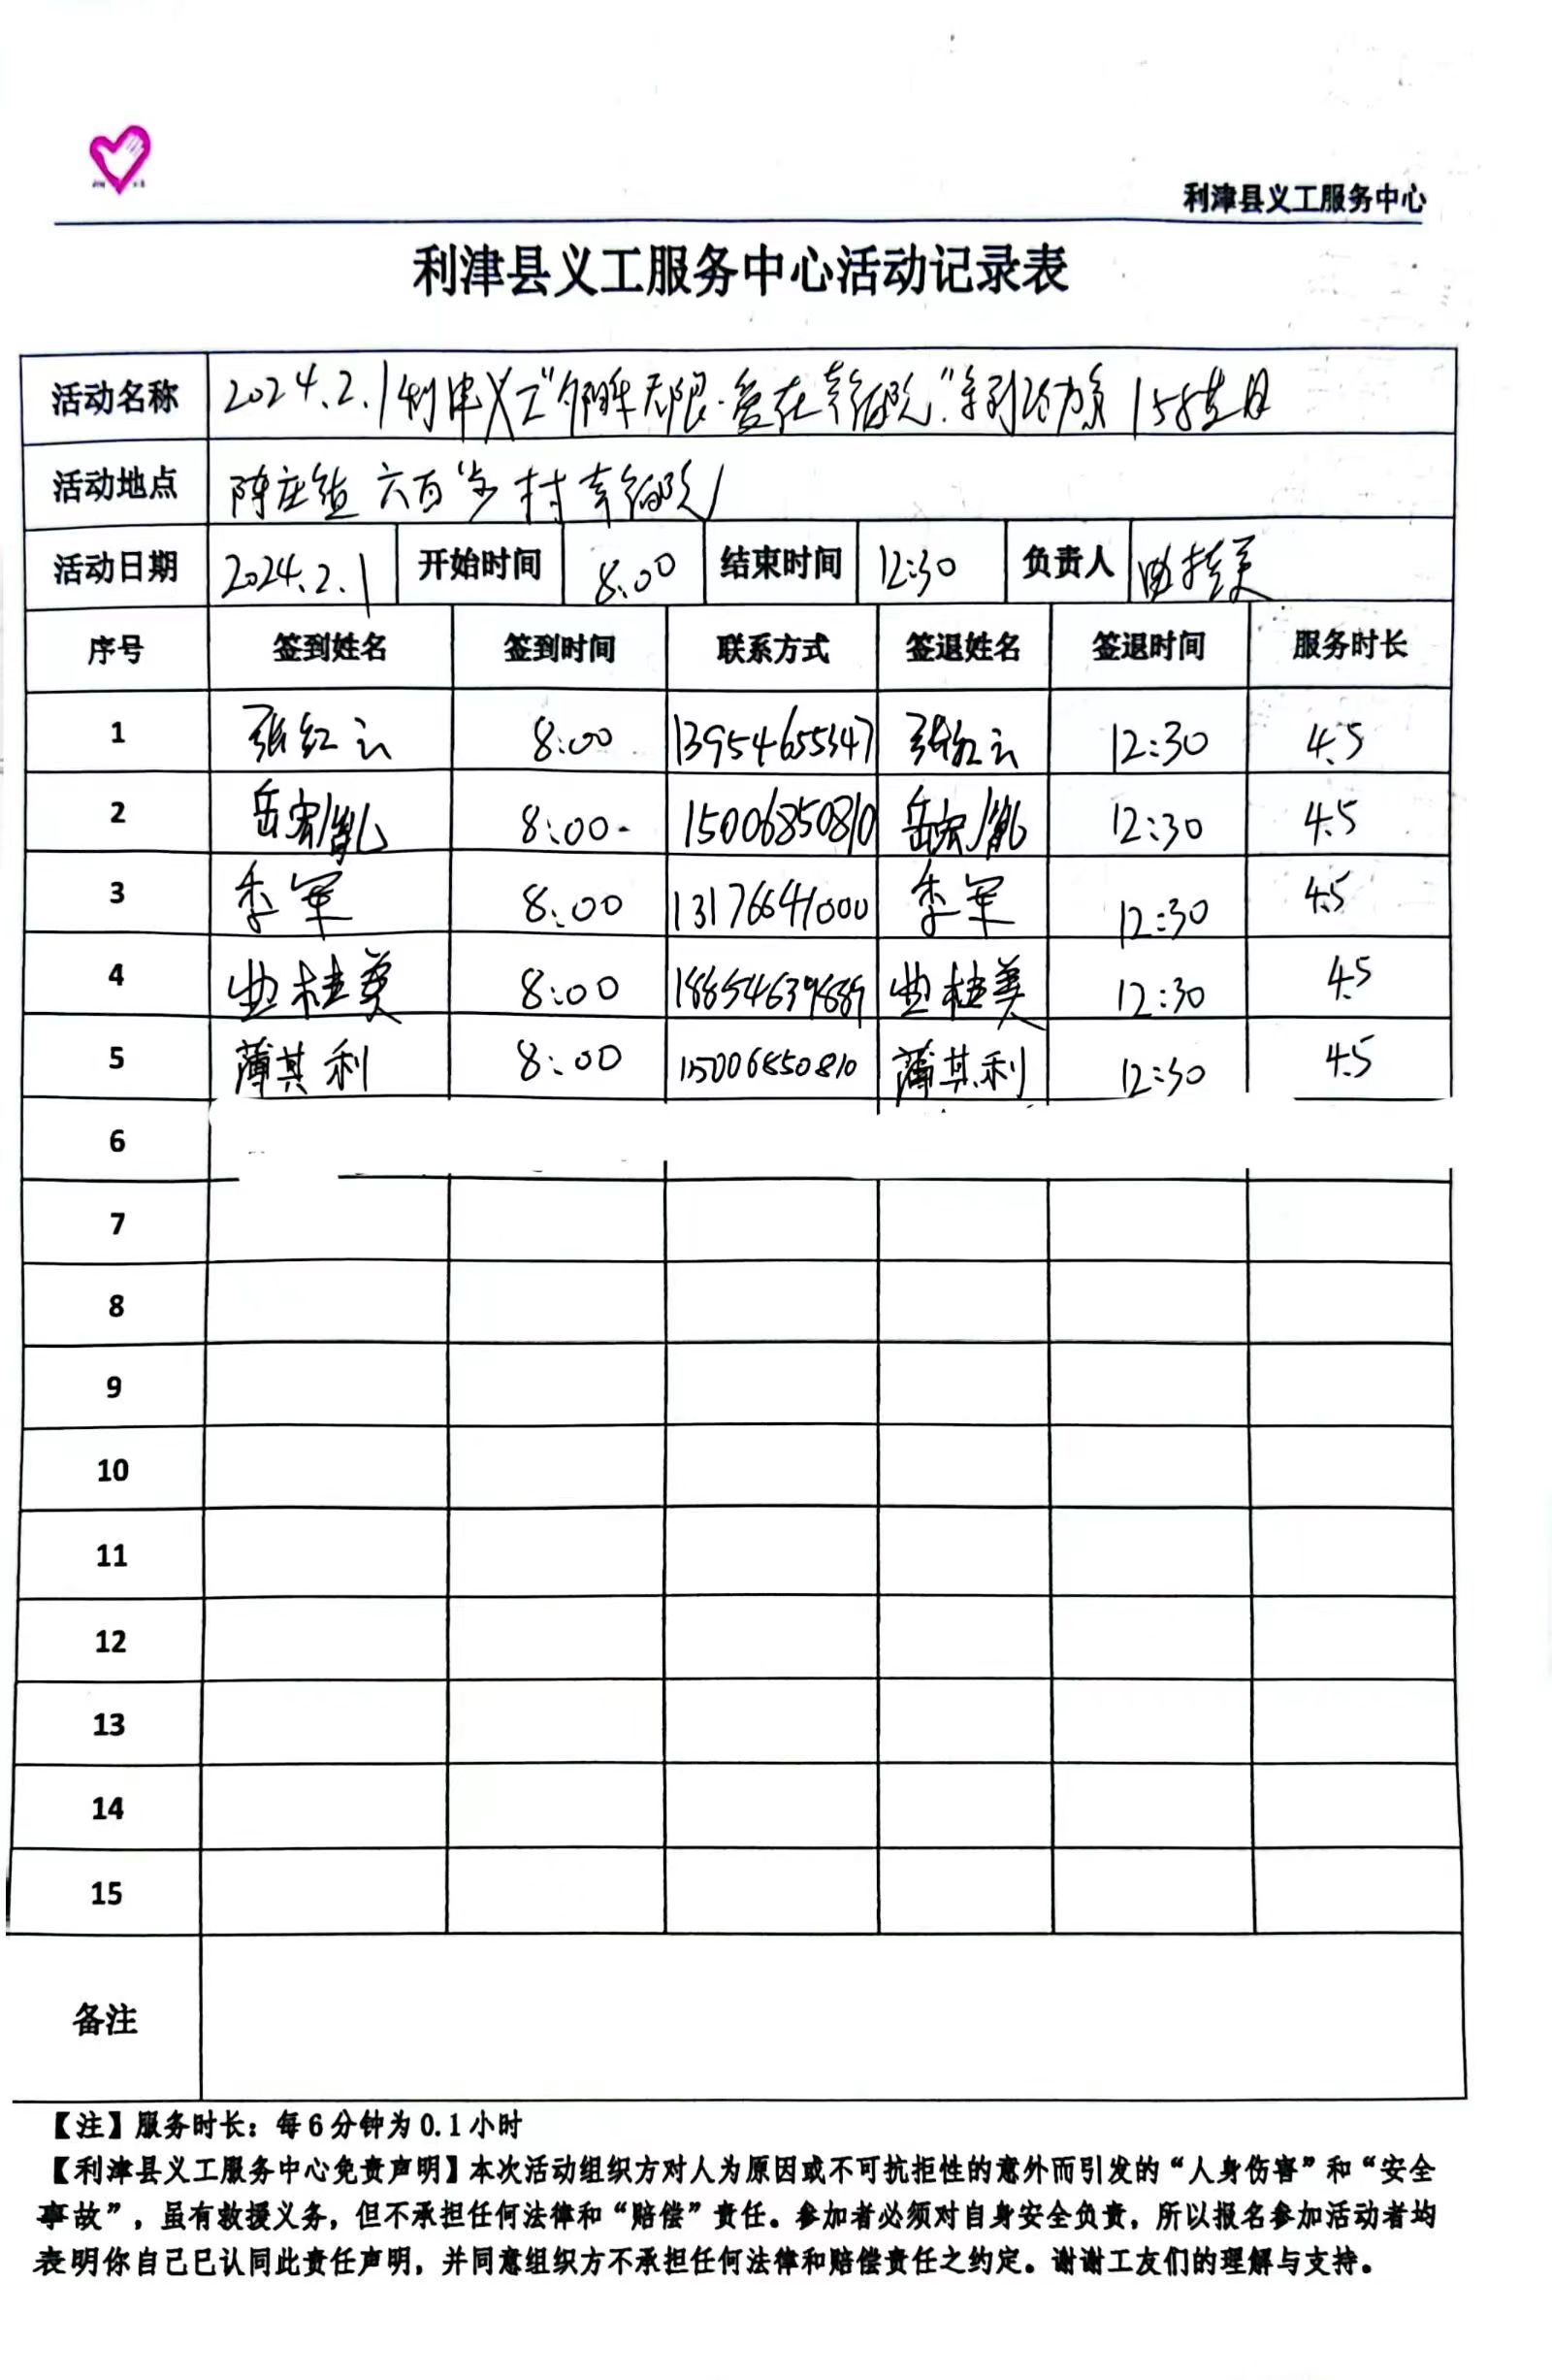 利津县义工服务中心
利津县义工服务中心活动记录表
活动名称 2024.2.1利津义工"夕阳无限·爱在幸福院"
活动地点 陈庄镇 六百步村幸福院
活动日期 2024.2.1 开始时间 8:00 结束时间 12:30 负责人 曲桂美
序号 签到姓名 签到时间 联系方式 签退姓名 签退时间 服务时长
1 张红云 8:00 13954655347 张红云 12:30 4.5
2 岳宏 8:00 15006850810 岳宏 12:30 4.5
3 李军 8:00 13176641000 李军 12:30 4.5
4 曲桂美 8:00 曲桂美 12:30 4.5
5 薄其利 8:00 15006850810 薄其利 12:30 4.5
6
7
8
9
10
11
12
13
14
15
备注
【注】服务时长：每6分钟为0.1小时
【利津县义工服务中心免责声明】本次活动组织方对人为原因或不可抗拒性的意外而引发的“人身伤害”和“安全
事故”，虽有救援义务，但不承担任何法律和“赔偿”责任。参加者必须对自身安全负责，所以报名参加活动者均
表明你自己已认同此责任声明，并同意组织方不承担任何法律和赔偿责任之约定。谢谢工友们的理解与支持。